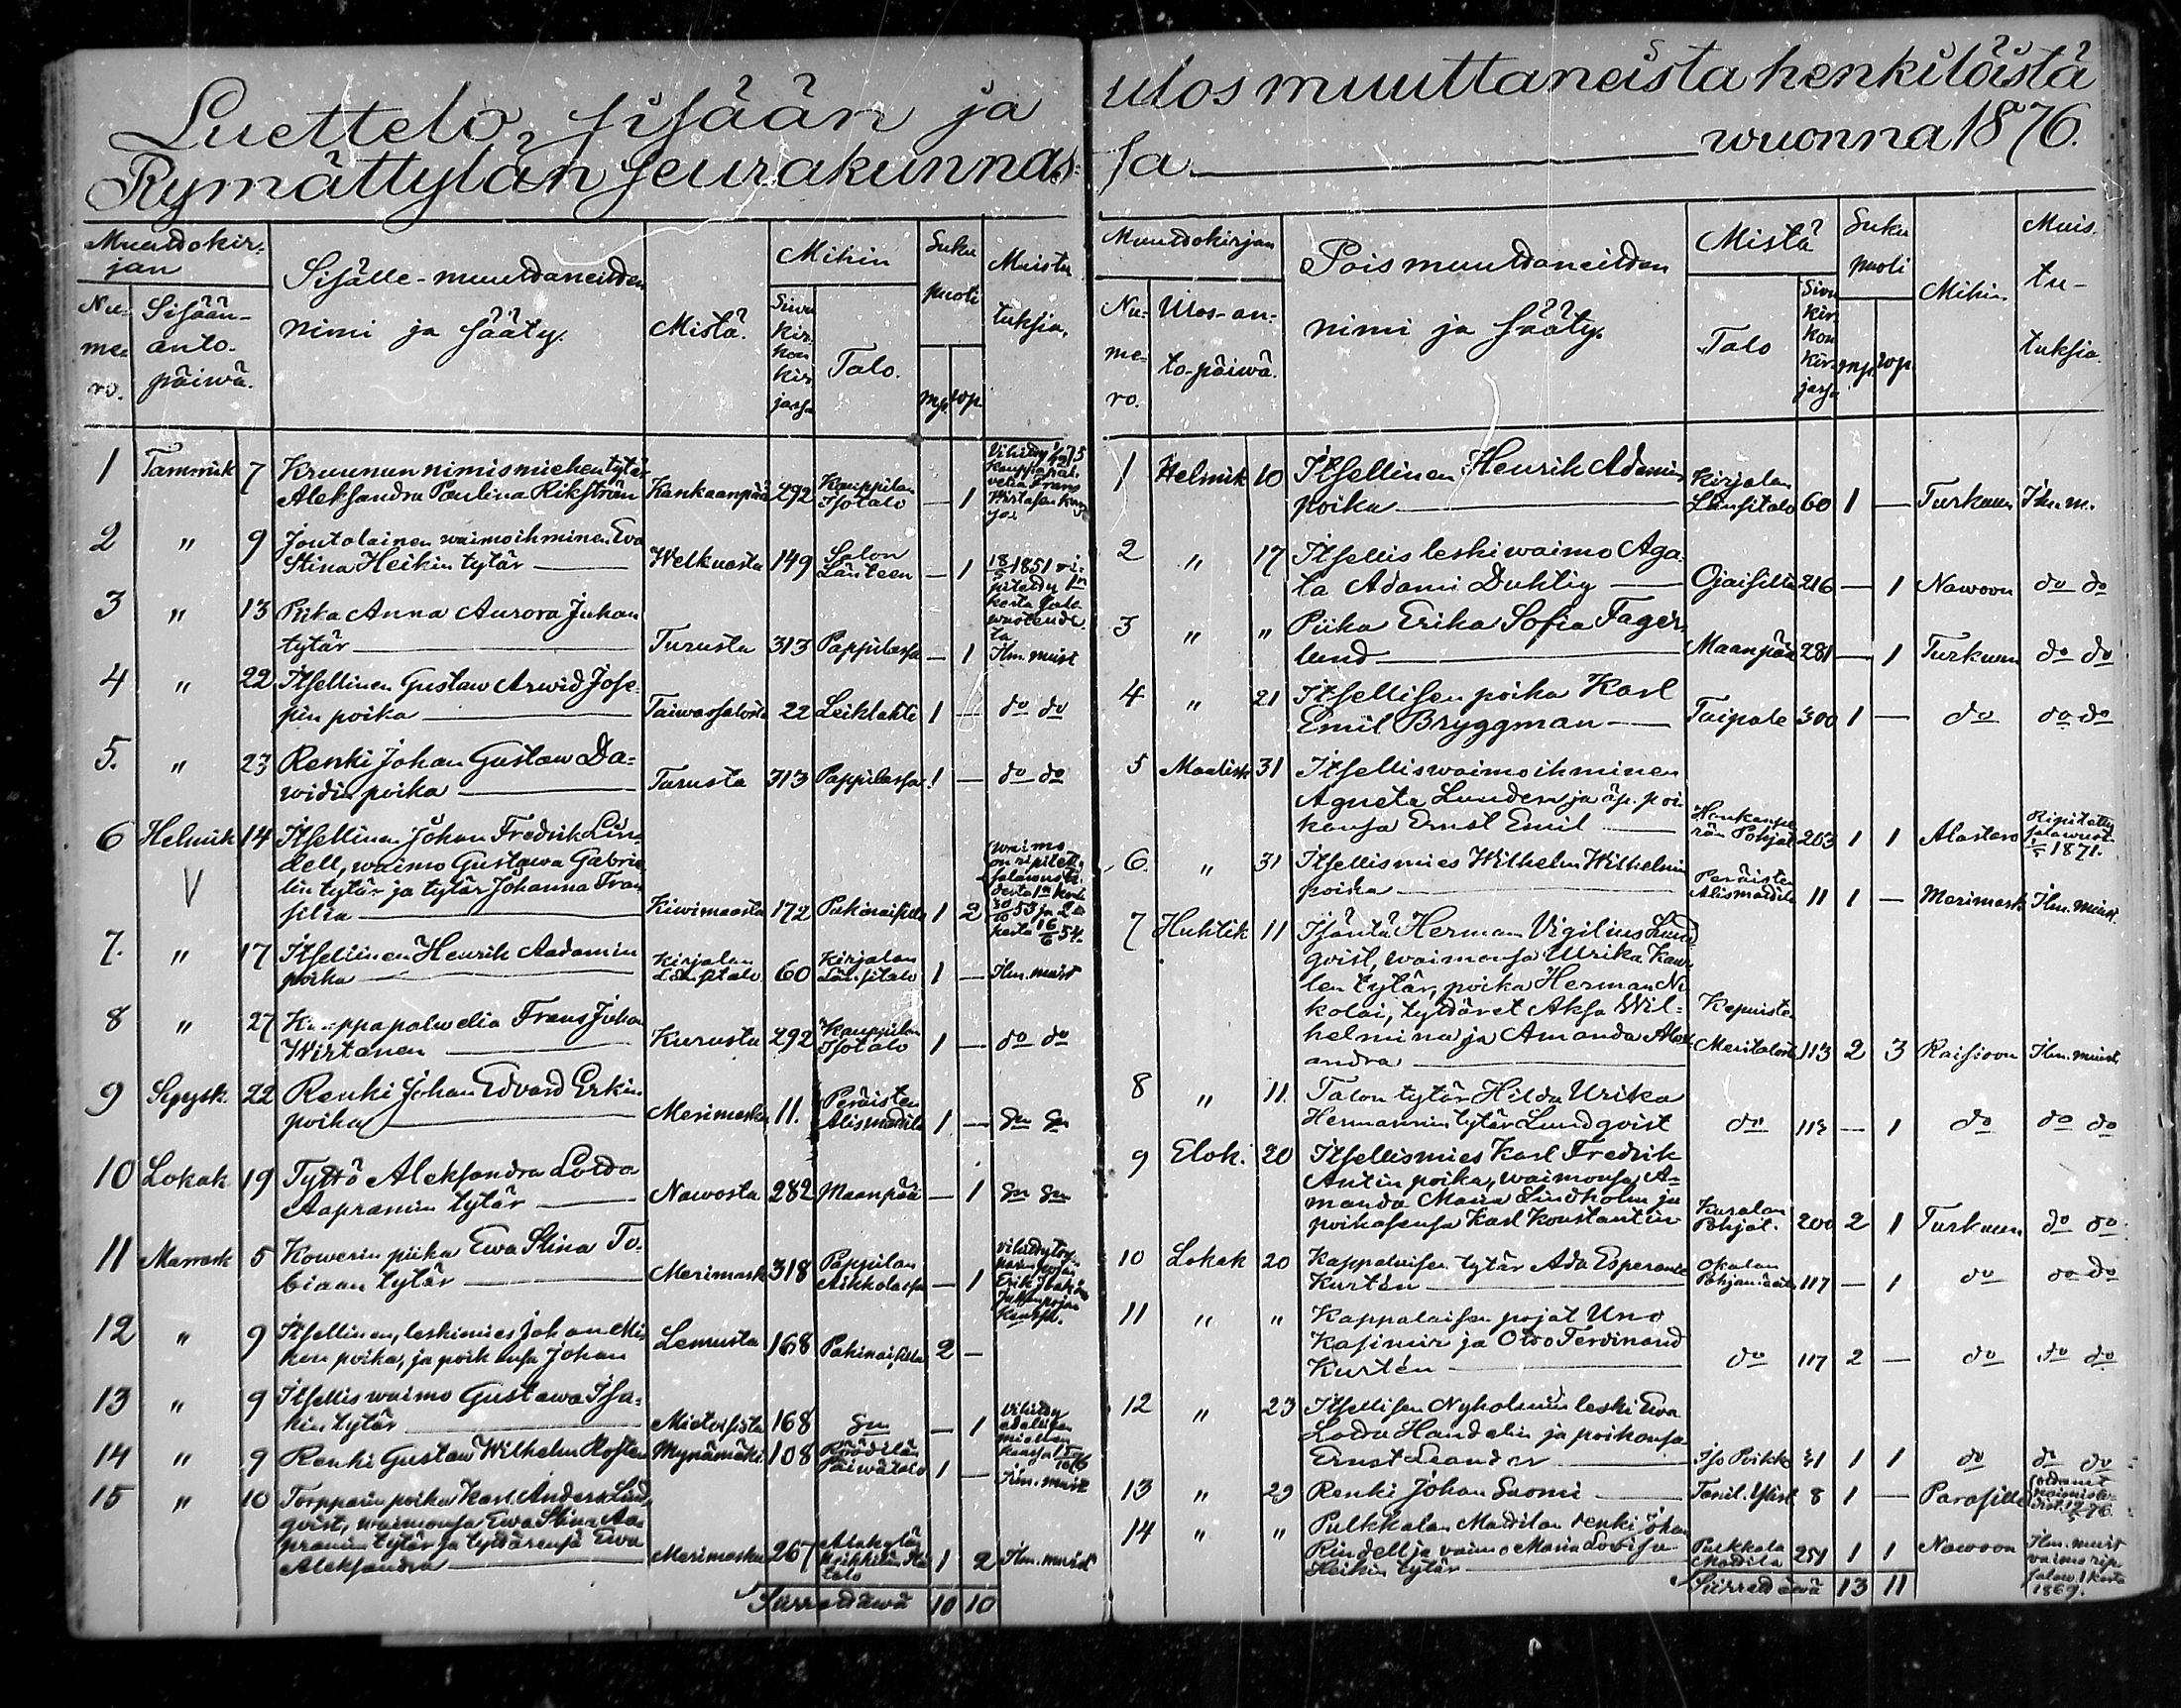 Luettelo sisään ja ulos muuttaneista henkilöistä
Rymättylän seurakunnas= sa wuonna 1876.
Muuttokir= jan
Nu= me= ro. Sisään= anto= päiwä.
Sisälle-muuttaneitten nimi ja sääty.
Mistä.
Mihin
Siwu kir kon kir jassa Talo.
Suku puoli
mp. wp.
Muistu tuksia.
1 Tammik 7 Kruunun nimismiehen tytär
Aleksandra Paulina Rikström Kankaanpää 292 Kauppilan Isotalo — 1
2 " 9 Joutolainen waimoihminen Eva
Stina Heikin tytär — Welkuasta 149 Salon Länteen — 1 1851
3 " 13 Piika Anna Aurora Juhan
tytär — Turusta 313 Pappilassa — 1 Ilm. muist
4 " 22 Itsellinen Gustaw Arwid Jose=
pin poika — Taiwassalosta 22 Leiklahti 1 — do do
5. " 23 Renki Johan Gustaw Da=
widin poika — Turusta 313 Pappilassa 1 — do do
6 Helmik 14 Itsellinen Johan Fredrik Lin=
dell, waimo Gustawa Gabrie
lin tytär ja tytär Johanna Fran
silia — Kiwimaasta 172 Pakinaisista 1 2
V
7. " 17 Itsellinen Henrik Aadamin
poika — Kirjalan Länsitalo 60 Kirjalan Länsitalo 1 — Ilm. muist
8 " 27 Kauppapalwelia Frans Juhan
Wirtanen — Kurusta 292 Kauppilan Isotalo 1 — do do
9 Sypysk. 22 Renki Johan Edvard Erkin
poika — Merimasku 11. Peräisten Alismattila 1 —
10 Lokak 19 Tyttö Aleksandra Lovisa
Aapramin tytär — Nawosta 282 Maanpää — 1
11 Marrask 5 Kowerin piika Ewa Stina To=
biaan tytär — Merimask 318 Pappilan Aikkolassa — 1
12 " 9 Itsellinen, leskimies Johan Mi
poika, ja poikansa Johan Lemusta 168 Pakinaisista 2 —
13 " 9 Itsellis waimo Gustawa Isa=
kin tytär — Mietoisista 168 — 1
14 " 9 Renki Gustaw Wilhelm Rosten Mynämäki 108 Röödilän Päiwätalo 1 — Ilm. muist
15 " 10 Torpparin poika Karl Anders Lind
qvist, waimonsa Ewa Stina Aa=
pramin tytär ja tyttärensä Ewa
Aleksandra — Merimasku 267 1 2 Ilm. muist
Siirrettäwä 10 10
Muuttokirjan
Nu= me= ro. Ulos-an= to-päiwä.
Pois muuttaneitten nimi ja sääty.
Mistä
Talo Siwu kir kon kir= jassa
Suku puoli
mp. wp.
Mihin
Muis= tu= tuksia.
1 Helmik 10 Itsellinen Henrik Adamin
poika — Kirjalan Länsitalo 60 1 — Turkuun Ilm. m.
2 " 17 Itsellis leskiwaimo Aga=
ta Adami Duktig — Ojaisista 216 — 1 Nawoon do do
3 " " Piika Erika Sofia Fager
lund — Maanpää 281 — 1 Turkuun do do
4 " 21 Itsellisen poika Karl
Emil Bryggman — Taipale 300 1 — do do do
5 Maalisk 31 Itselliswaimoihminen
Agneta Lunden ja äp. poi
kansa Ernst Emil — Pohjat 263 1 1 Alastaro Ripitetty salawuot. 1871.
6. " 31 Itsellismies Wilhelm Wilhelmin
poika — Peräisten Alismattila 11 1 — Merimask Ilm. muist
7 Huhtik 11 Isäntä Herman Vigilius Lund
qvist, waimonsa Ulrika Kaar
len tytär, poika Herman Ni
kolai, tyttäret Aksa Wil=
helmina ja Amanda Aleks
andra — Kepuista Meritalosta 113 2 3 Raisioon Ilm. muist
8 " 11. Talon tytär Hilda Urika
Hermannin tytär Lundqvist do 113 — 1 do do do
9 Elok. 20 Itsellismies Karl Fredrik
Antin poika, waimonsa A=
manda Maria Lindholm ja
poikasensa Karl Konstantin Kuralan Pohjat. 200 2 1 Turkuun do do
10 Lokak 20 Kappalaisen tytär Ada Esperance
Kurtén — 117 — 1 do do do
11 " " Kappalaisen pojat Uno
Kasimir ja Otto Ferdinand
Kurtén — do 117 2 — do do do
12 " 23 Itsellisen Nyholmin leski Ewa
Lovisa Handelin ja poikansa
Ernst Leander — Iso Poikko 31 1 1 do do do
13 " 29 Renki Johan Suomi — 8 1 —
14 " " Pulkkalan Mattilan renki Johan
Rindell ja vaimo Maria Lovisa
Heikin tytär — Pulkkala Mattila 251 1 1 Nawoon Ilm. muist vaimo rip. salaw. 1 kerta 1869.
Siirrettäwä 13 11